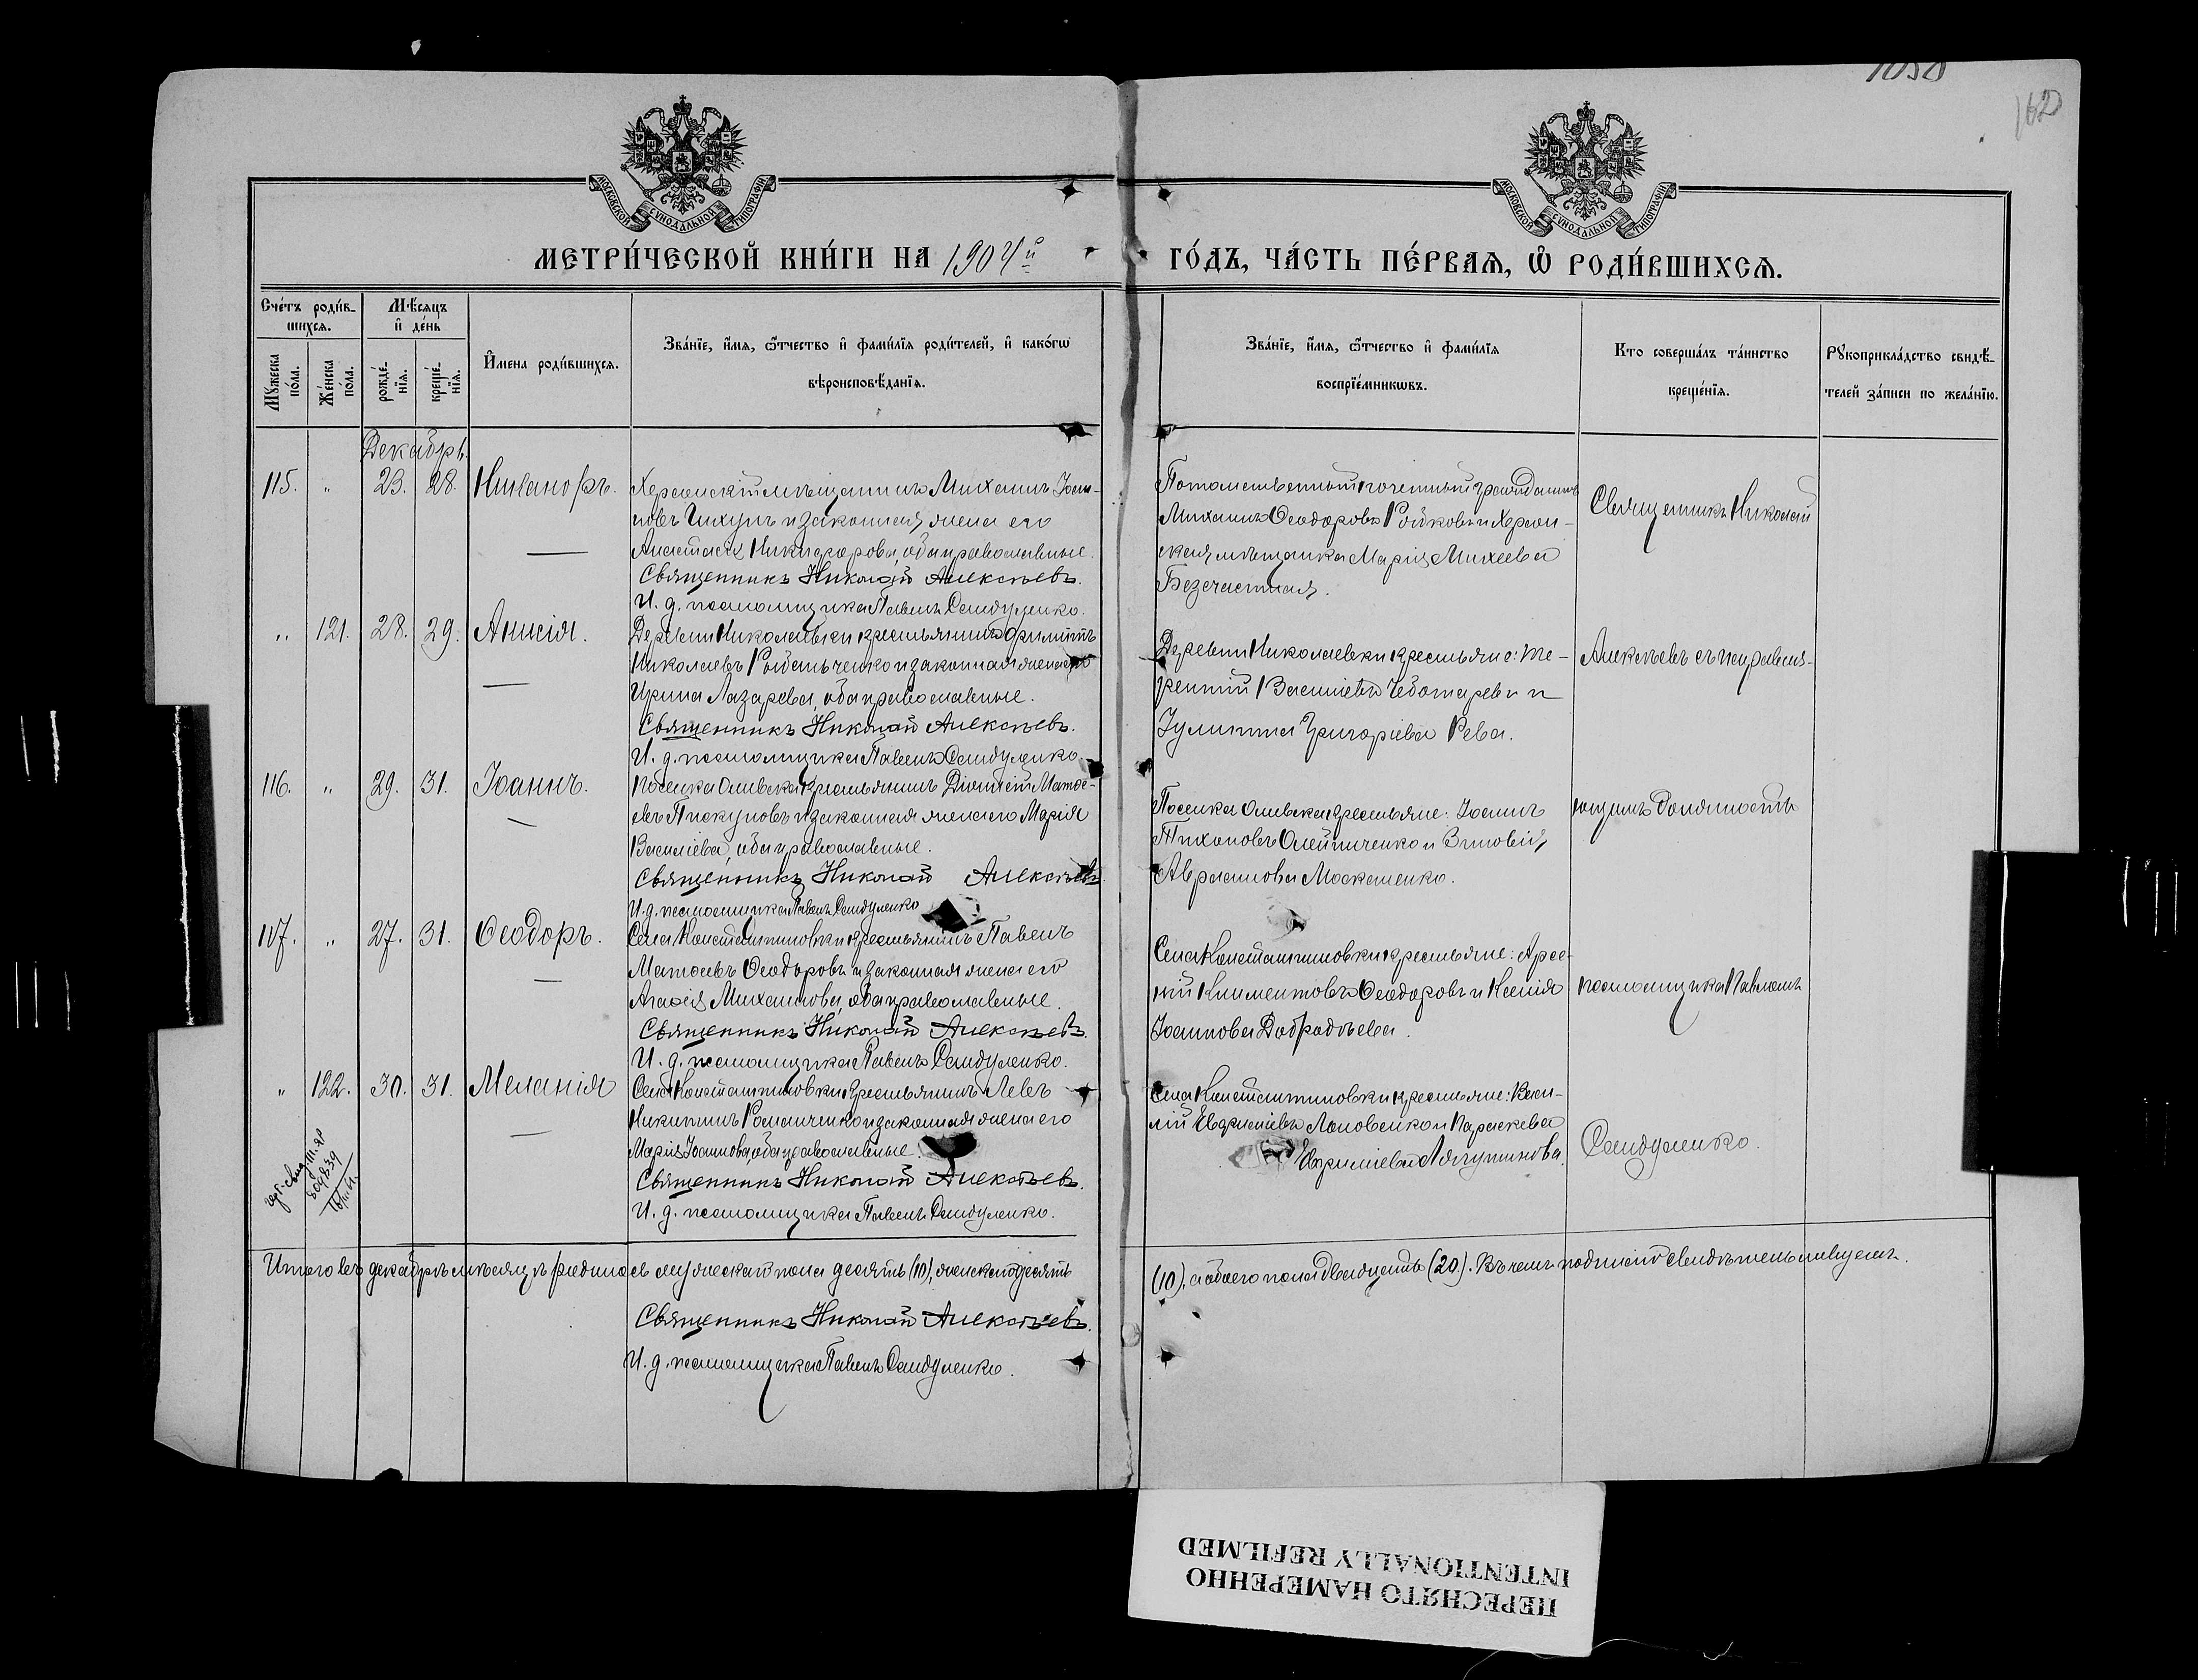 1050
162
МОСКОВСКОЙ СУНОДАЛЬНОЙ ТИПОГРАФІИ
МОСКОВСКОЙ СУНОДАЛЬНОЙ ТИПОГРАФІИ
МЕТРИ́ЧЕСКОЙ КНИ́ГИ НА 1904й
ГО́ДЪ, ЧА́СТЬ ПЕ́РВАѦ, Ѽ РОДИ́ВШИХСѦ.
Сче́тъ роди́в-
шихсѧ.
Мѣ́сѧцъ
и҆ де́нь
Мꙋ́жеска
по́ла.
Же́нска
по́ла.
рожде́-
нїѧ.
креще́-
нїѧ.
И҆мена роди́вшихсѧ.
Зва́нїе, и҆́мѧ, ѻ҆́тчество и҆ фами́лїѧ роди́телей, и҆ како́гѡ
вѣроисповѣ́данїѧ.
Зва́нїе, и҆́мѧ, ѻ҆́тчество и҆ фами́лїѧ
воспрїе́мникѡвъ.
Кто соверша́лъ та́инство
креще́нїѧ.
Рꙋкоприкла́дство свидѣ́-
телей за́писи по жела́нїю.
Декабрь.
115. " 23. 28. Никаноръ.
Херсонскій мѣщанинъ Михаилъ Іоан-
новъ Чихунъ и законная жена его
Анастасія Никифорова, оба православные.
Священникъ Николай Алексѣевъ.
И. д. псаломщика Павелъ Сандуленко.
Потомственный почетный гражданинъ
Михаилъ Ѳеодоровъ Ройковъ и Херсон-
ская мѣщанка Марія Михеева
Безчастная.
Священникъ Николай
" 121. 28. 29. Анисія.
Деревни Николаевки крестьянинъ Филиппъ
Николаевъ Радченко и законная жена его
Ирина Лазарева, оба православные.
Священникъ Николай Алексѣевъ.
И. д. псаломщика Павелъ Сандуленко.
Деревни Николаевки крестьяне: Те-
рентій Васильевъ Чеботаревъ и
Іулитта Григоріева Рева.
Алексѣевъ съ исправля-
116. " 29. 31. Іоаннъ.
Поселка Ольвска крестьянинъ Діонисій Матѳе-
евъ Пискуновъ и законная жена его Марія
Василіева, оба православные.
Священникъ Николай Алексѣевъ
И. д. псаломщика Павелъ Сандуленко
Поселка Ольвска крестьяне: Іоаннъ
Тихоновъ Олейниченко и Зиновія
Авраамова Москаленко.
ющимъ должность
117. " 27. 31. Ѳеодоръ.
Села Константиновки крестьянинъ Павелъ
Матѳеевъ Ѳеодоровъ и законная жена его
Агаѳія Михаилова, оба православные.
Священникъ Николай Алексѣевъ.
И. д. псаломщика Павелъ Сандуленко.
Села Константиновки крестьяне: Арсе-
ній Климентовъ Ѳеодоровъ и Ксенія
Іоаннова Добродѣева.
псаломщика Павломъ
" 122. 30. 31. Меланія
Села Константиновки крестьянинъ Левъ
Никитинъ Романченко и законная жена его
Марія Іоаннова, оба православные.
Священникъ Николай Алексѣевъ.
И. д. псаломщика Павелъ Сандуленко.
Села Константиновки крестьяне: Васи-
лій Евфиміевъ Лановенко и Параскева
Евфиміева Лягутинова.
Сандуленко.
Итого въ декабрѣ мѣсяцѣ родилось мужескаго пола десять (10), женскаго десять
(10), а обоего пола двадцать (20). Въ чемъ подписомъ свидѣтельствуемъ.
Священникъ Николай Алексѣевъ.
И. д. псаломщика Павелъ Сандуленко.
ПЕРЕСНЯТО НАМЕРЕННО
INTENTIONALLY REFILMED